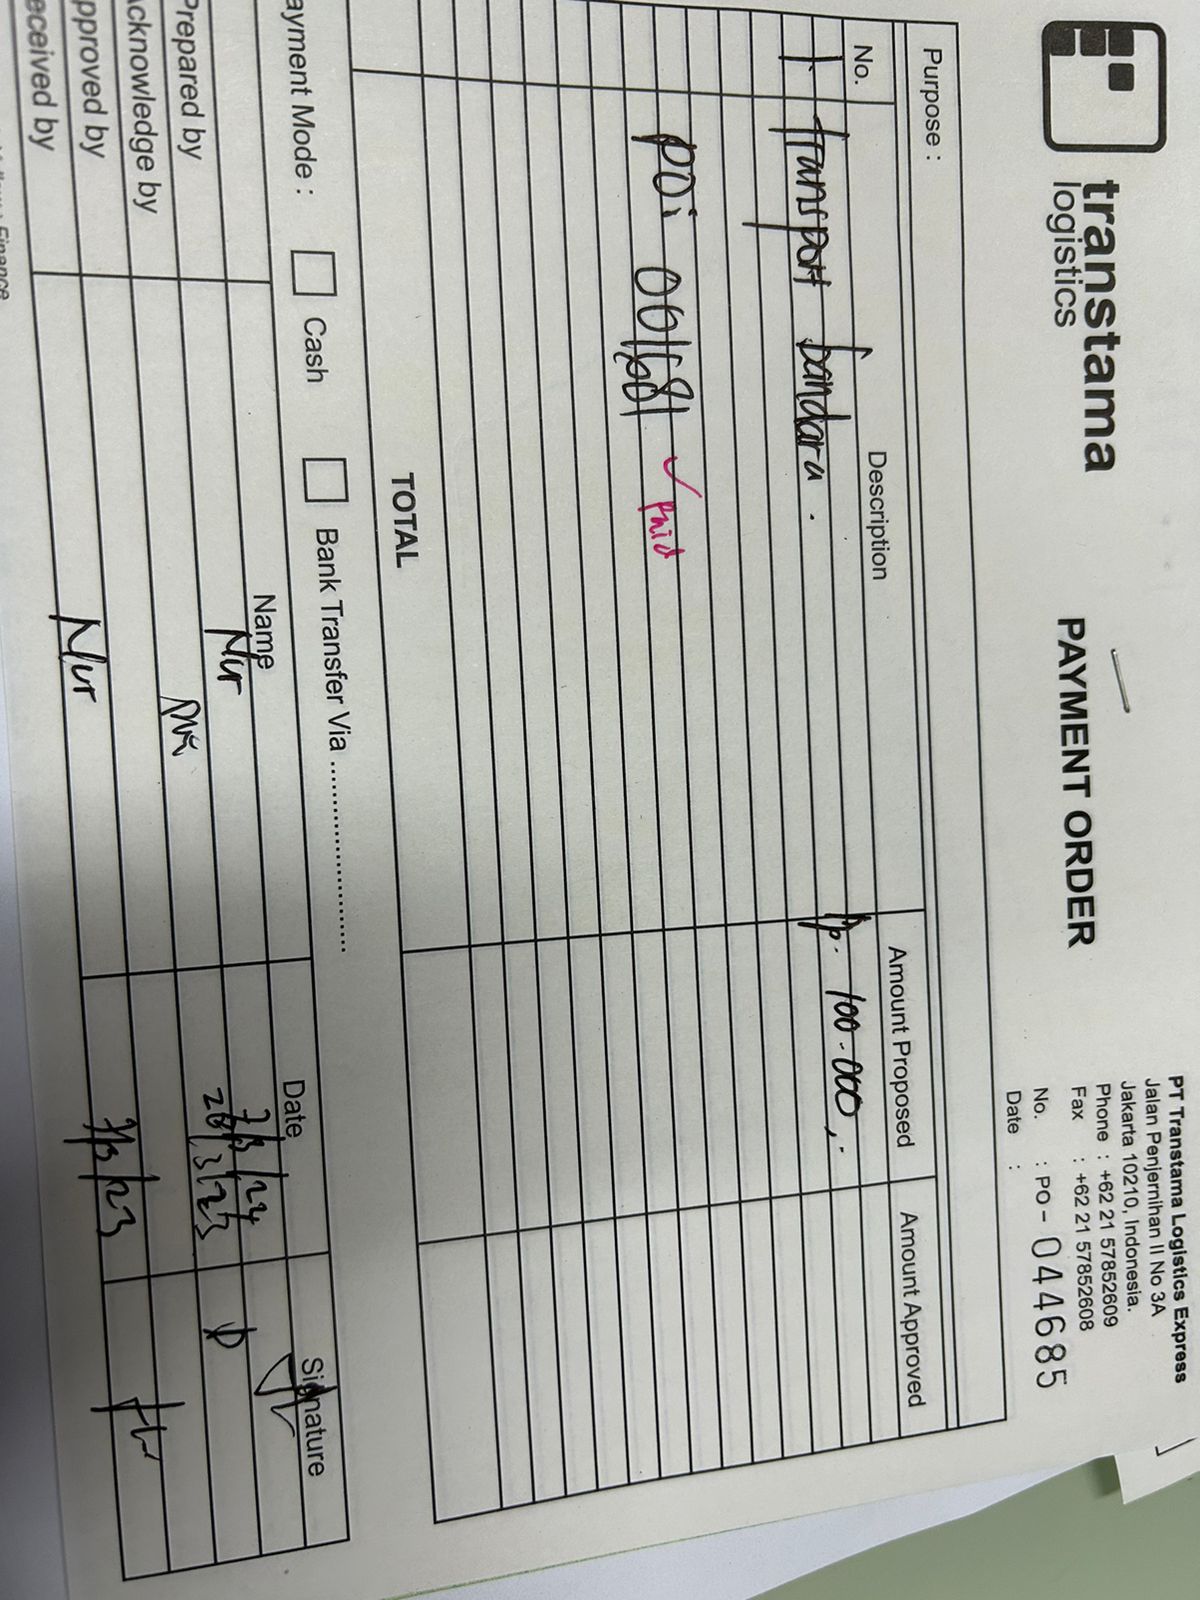 transtama
logistics
PAYMENT ORDER
PT Transtama Logistics Express
Jalan Penjernihan II No 3A
Jakarta 10210, Indonesia.
Phone : +62 21 57852609
Fax : +62 21 57852608
No. : PO - 044685
Date :
Purpose :
No. Description Amount Proposed Amount Approved
1 transport bandara. Rp. 100.000,-
POi 001681 ✓ Paid
TOTAL
ayment Mode : Cash Bank Transfer Via ........................
Name Date Signature
Prepared by Nur 7/3/24
cknowledge by 28/3/23
pproved by
eceived by Nur 7/3/23
Finance